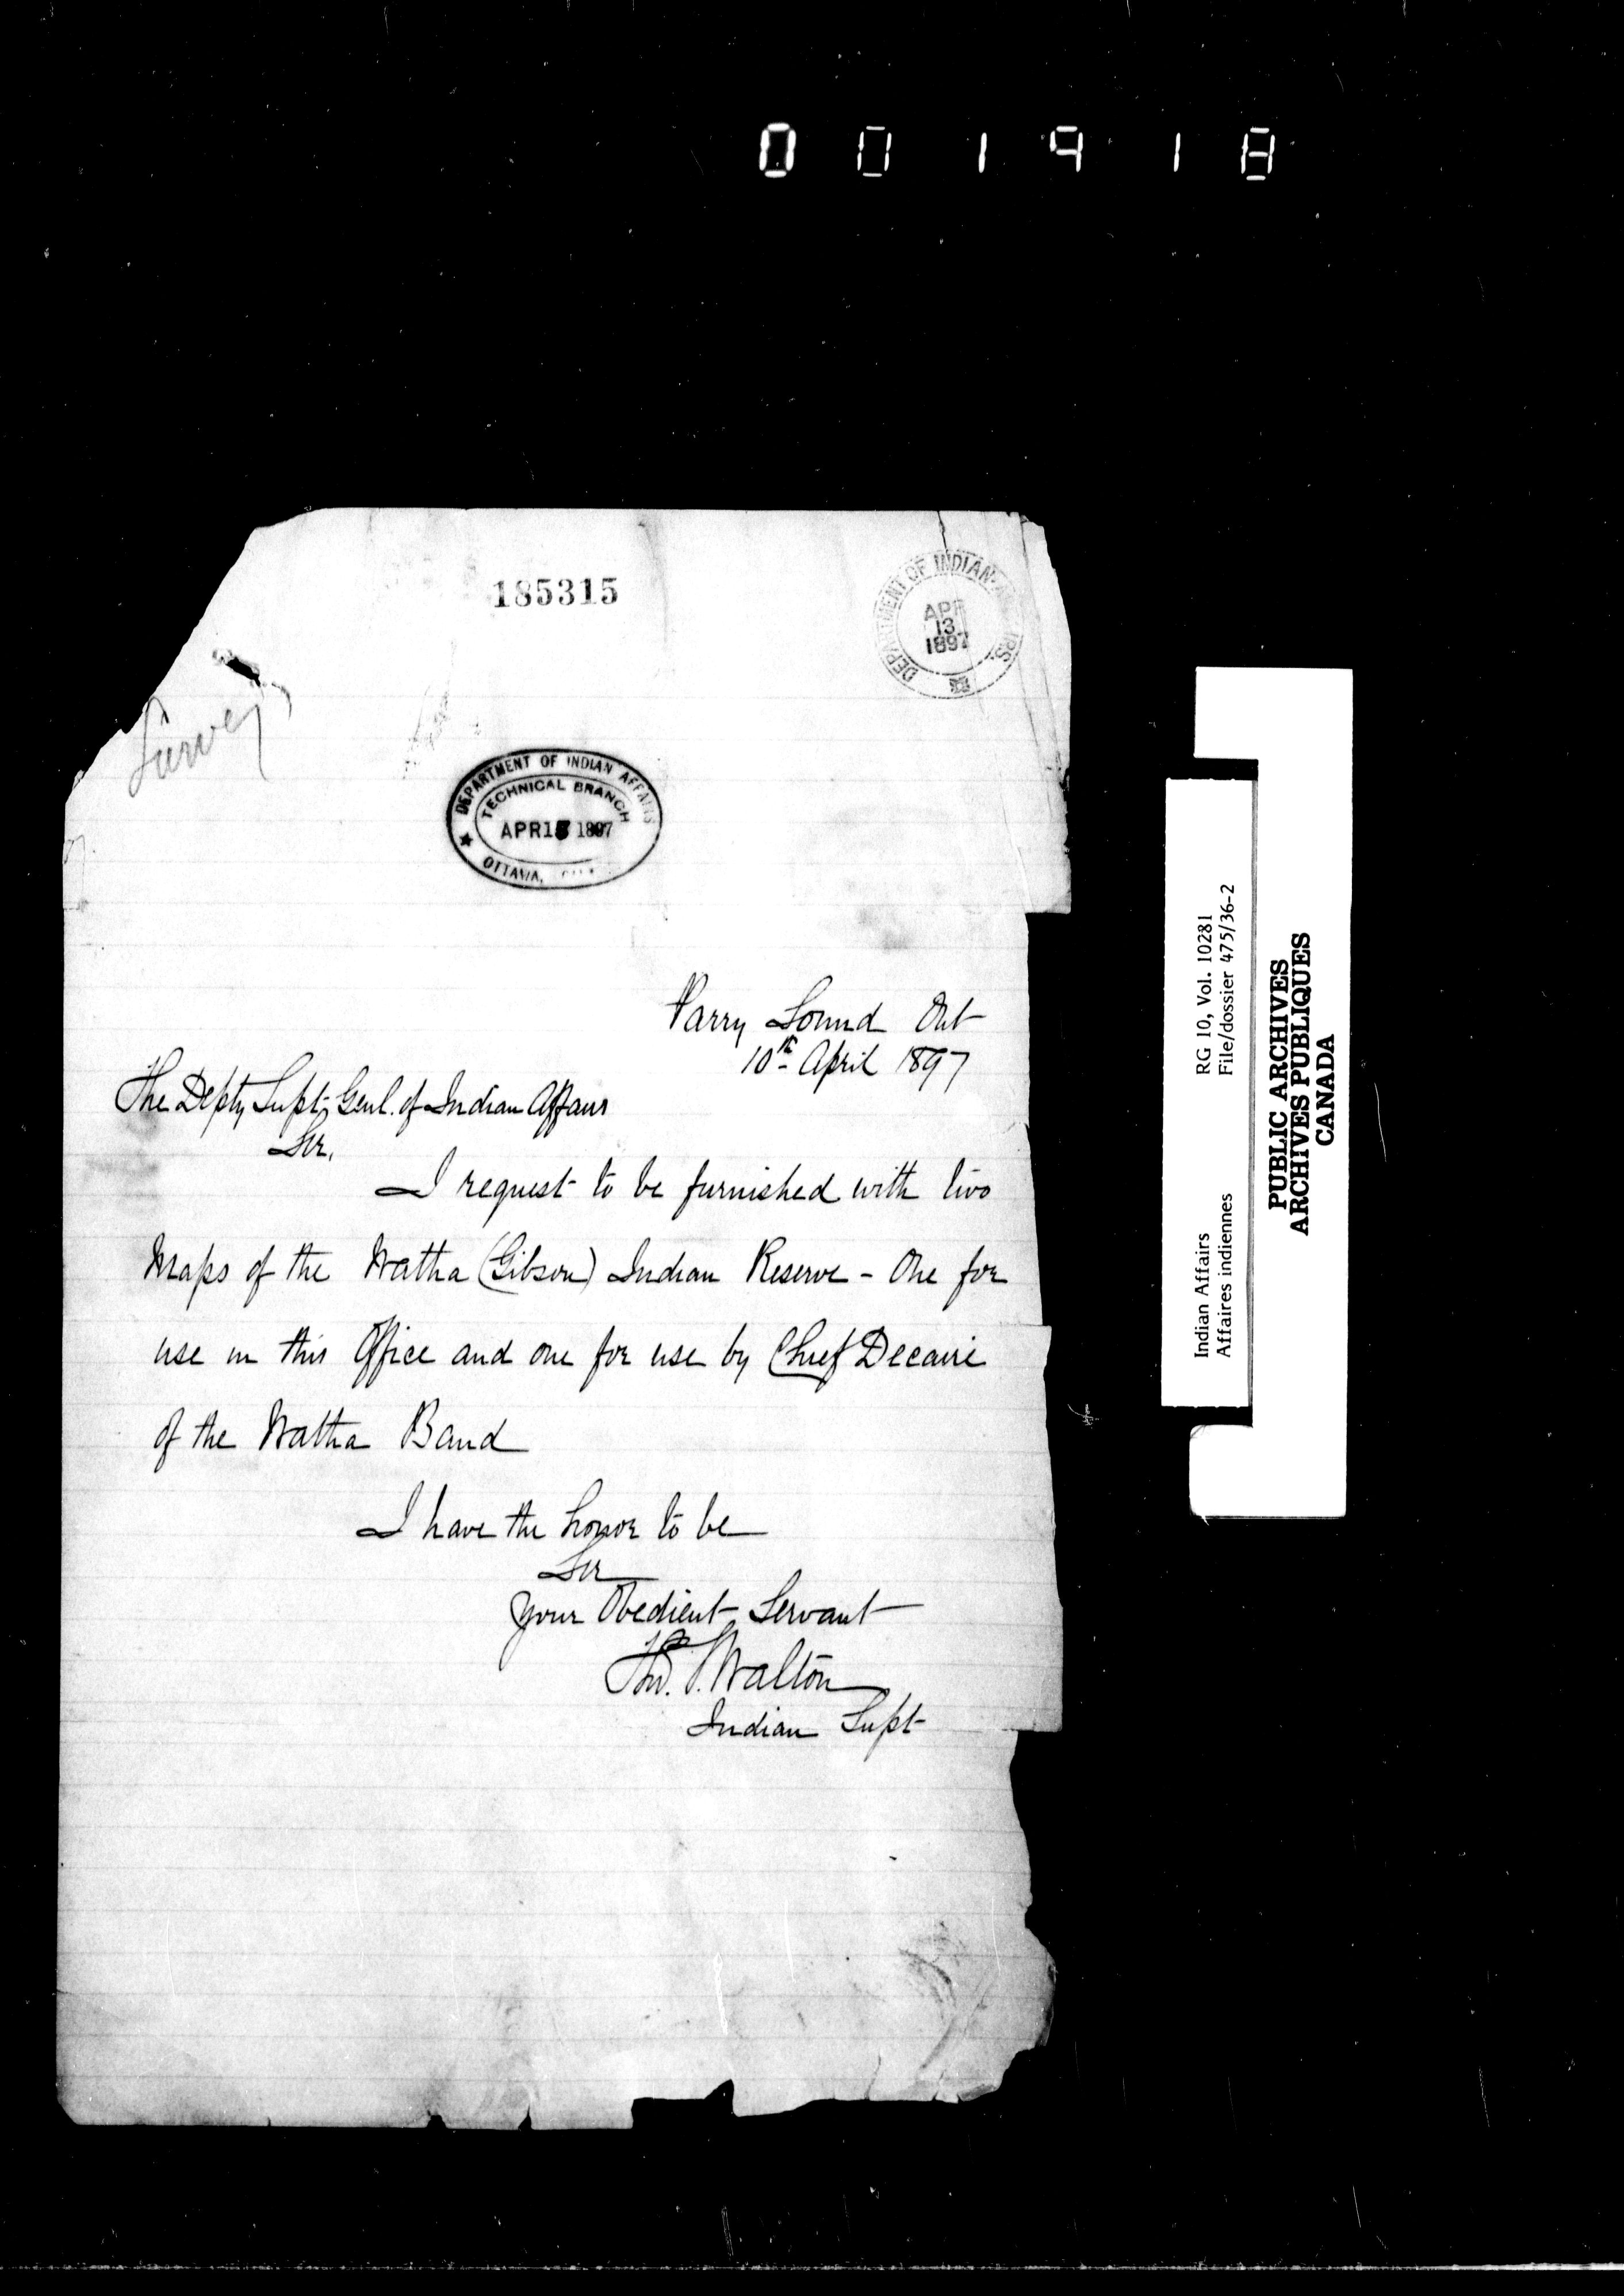 001918
185315
DEPARTMENT OF INDIAN AFFAIRS.
APR
13
1897
Survey
DEPARTMENT OF INDIAN AFFAIRS
TECHNICAL BRANCH
APR 1 1897
OTTAWA,
Parry Sound Ont
10th April 1897
The Depty Supt. Genl. of Indian Affairs
Sir,
I request to be furnished with two
Maps of the Watha (Gibson) Indian Reserve - One for
use in this Office and one for use by Chief Decaire
of the Watha Band
I have the honor to be
Sir
Your Obedient Servant
Thos. S. Walton
Indian Supt
Indian Affairs RG 10, Vol. 10281
Affaires indiennes File/dossier 475/36-2
PUBLIC ARCHIVES
ARCHIVES PUBLIQUES
CANADA